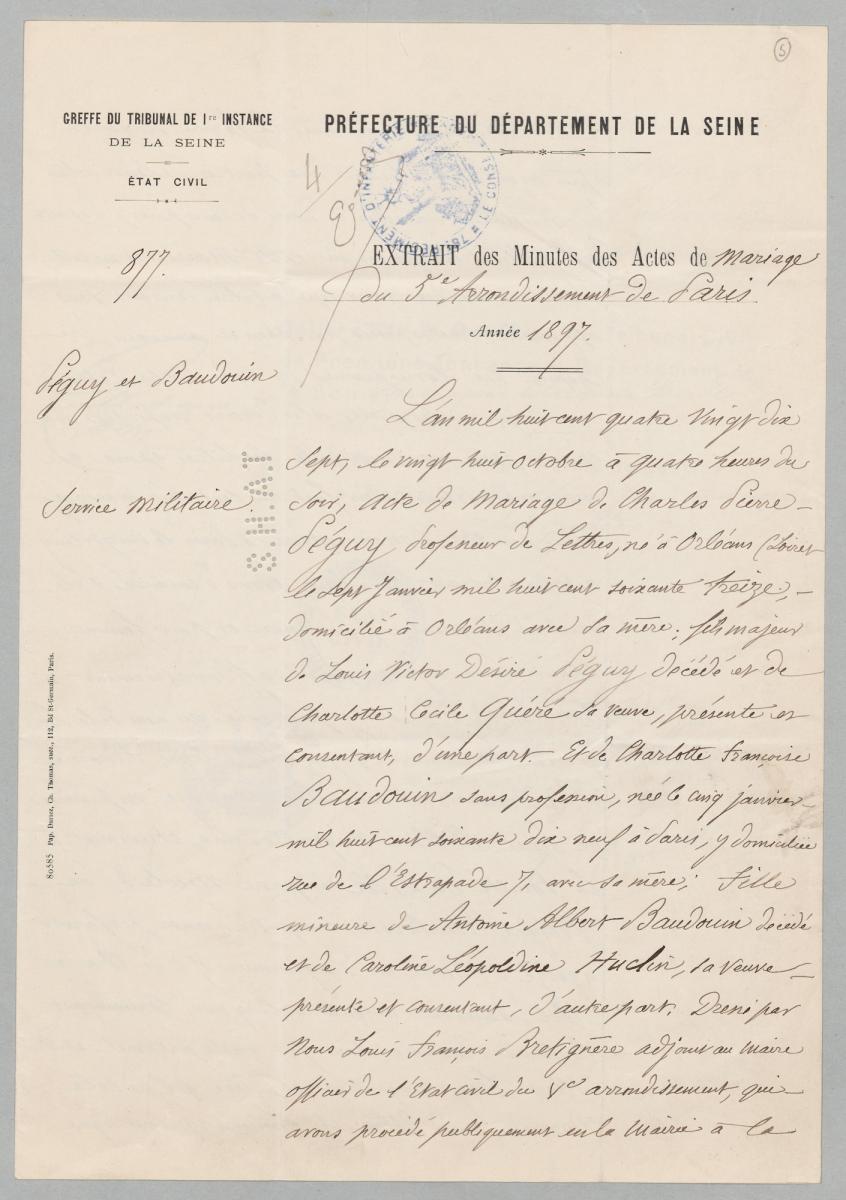 5
GREFFE DU TRIBUNAL DE Ire INSTANCE
DE LA SEINE
ÉTAT CIVIL
877.
Péguy et Baudouin
Service Militaire.
S.H.A.T
80585 Pap. Ch. Thomas, succ., 112, Bd St-Germain, Paris.
PRÉFECTURE DU DÉPARTEMENT DE LA SEINE
4
78e REGIMENT D'INFANTERIE
EXTRAIT des Minutes des Actes de Mariage
du 5e Arrondissement de Paris.
Année 1897.
L'an mil huit cent quatre vingt dix
sept, le vingt huit octobre à quatre heures du
soir, acte de Mariage de Charles Pierre
Péguy professeur de Lettres, né à Orléans (Loiret
le sept Janvier mil huit cent soixante treize,
domicilié à Orléans avec sa mère; fils majeur
de Louis Victor Désiré Péguy décédé et de
Charlotte Cecile Quéré sa veuve, présente et
consentant, d'une part. Et de Charlotte Françoise
Baudouin sans profession, née le cinq janvier
mil huit cent soixante dix neuf à Paris, y domiciliée
rue de l'Estrapade 7, avec sa mère; Fille
mineure de Antoine Albert Baudouin décédé
et de Caroline Léopoldine Huclin, sa veuve
présente et consentant, d'autre part. Dressé par
Nous Louis François Bretignère adjoint au Maire
officier de l'Etat civil du Ve arrondissement, qui
avons procédé publiquement en la Mairie à la